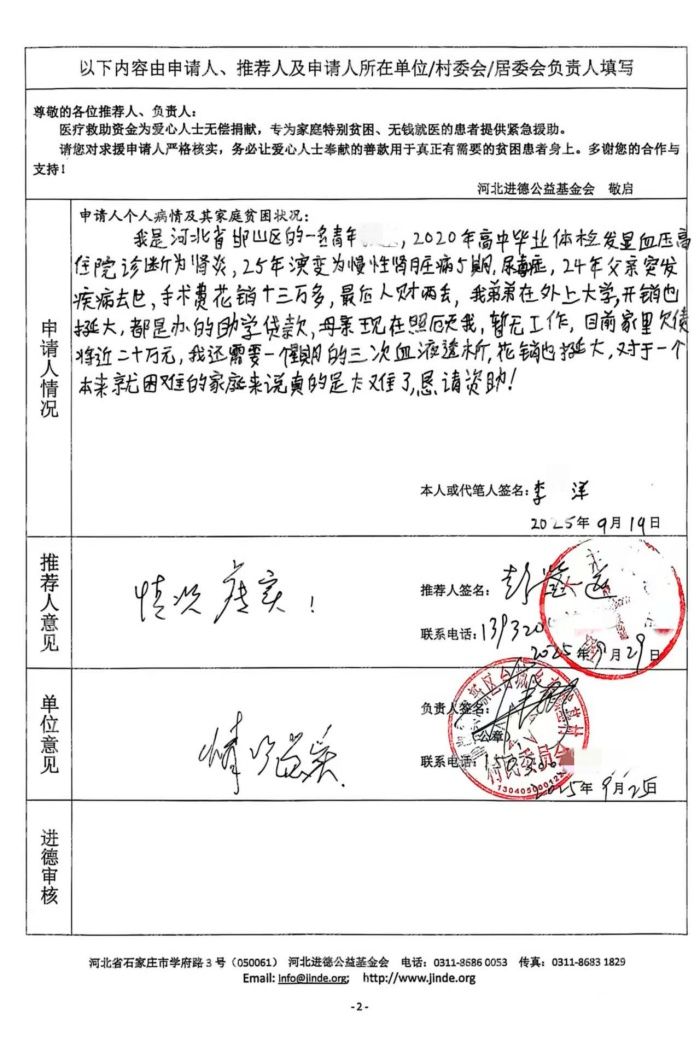 以下内容由申请人、推荐人及申请人所在单位/村委会/居委会负责人填写
尊敬的各位推荐人、负责人：
医疗救助资金为爱心人士无偿捐献，专为家庭特别贫困、无钱就医的患者提供紧急援助。
请您对求援申请人严格核实，务必让爱心人士奉献的善款用于真正有需要的贫困患者身上。多谢您的合作与
支持！
河北进德公益基金会 敬启
申请人情况
申请人个人病情及其家庭贫困状况：
我是河北省邯山区的一名青年，2020年高中毕业体检发显血压高
住院诊断为肾炎，25年演变为慢性肾脏病5期，尿毒症，24年父亲突发
疾病去世，手术费花销十三万多，最后人财两去，我弟弟在外上大学，开销也
挺大，都是办的助学贷款，母亲现在照顾我，暂无工作，目前家里欠债
将近二十万元，我还需要一个星期的三次血液透析，花销也挺大，对于一个
本来就困难的家庭来说真的是太难了，恳请资助！
本人或代笔人签名：李 洋
2025年9月19日
推荐人意见
情况真实！
推荐人签名：彭
联系电话：139320
2025年9月29日
单位意见
情况属实
负责人签名：
（公章）
联系电话：15
村民委员会
2025年9月25日
进德审核
河北省石家庄市学府路3号（050061） 河北进德公益基金会 电话：0311-8686 0053 传真：0311-8683 1829
Email: info@jinde.org; http://www.jinde.org
-2-